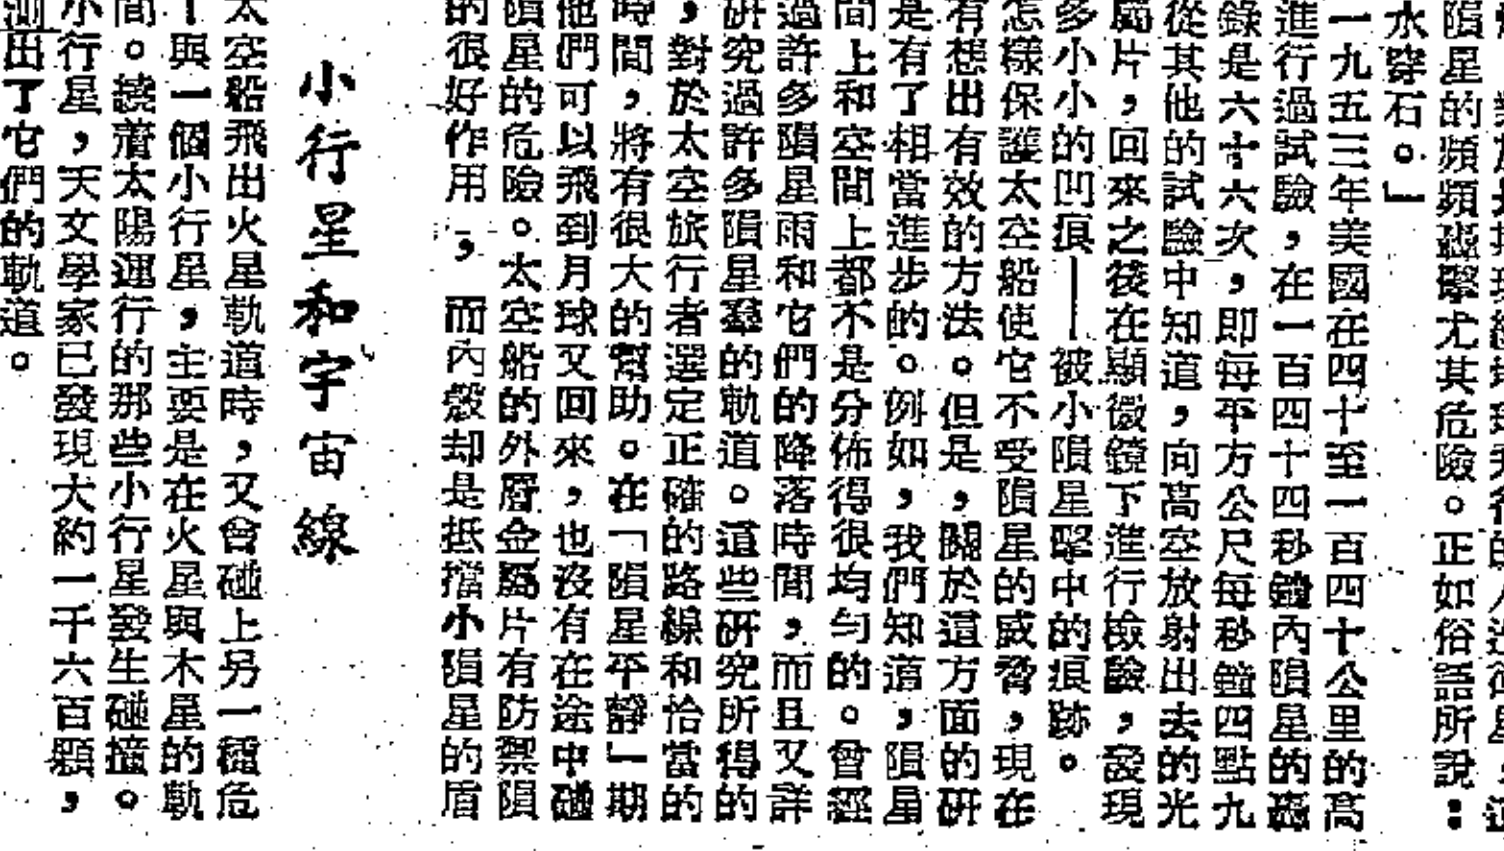 隕星的頻頻碰擊尤其危險。正如俗語所說：
水穿石。」
一九五三年美國在四十至一百四十公里的高
進行過試驗，在一百四十四秒鐘內隕星的碰
錄是六十六次，即每平方公尺每秒鐘四點九
從其他的試驗中知道，向高空放射出去的光
屬片，回來之後在顯微鏡下進行檢驗，發現
多小小的凹痕——被小隕星擊中的痕跡。
怎樣保護太空船使它不受隕星的威脅，現在
有想出有效的方法。但是，關於這方面的研
是有了相當進步的。例如，我們知道，隕星
間上和空間上都不是分佈得很均勻的。曾經
過許多隕星雨和它們的降落時間，而且又詳
研究過許多隕星羣的軌道。這些研究所得的
，對於太空旅行者選定正確的路線和恰當的
時間，將有很大的幫助。在「隕星平靜」期
他們可以飛到月球又回來，也沒有在途中碰
隕星的危險。太空船的外層金屬片有防禦隕
的很好作用，而內殼却是抵擋小隕星的盾
小行星和宇宙線
太空船飛出火星軌道時，又會碰上另一種危
—與一個小行星，主要是在火星與木星的軌
間。繞着太陽運行的那些小行星發生碰撞。
小行星，天文學家已發現大約一千六百顆，
測出了它們的軌道。